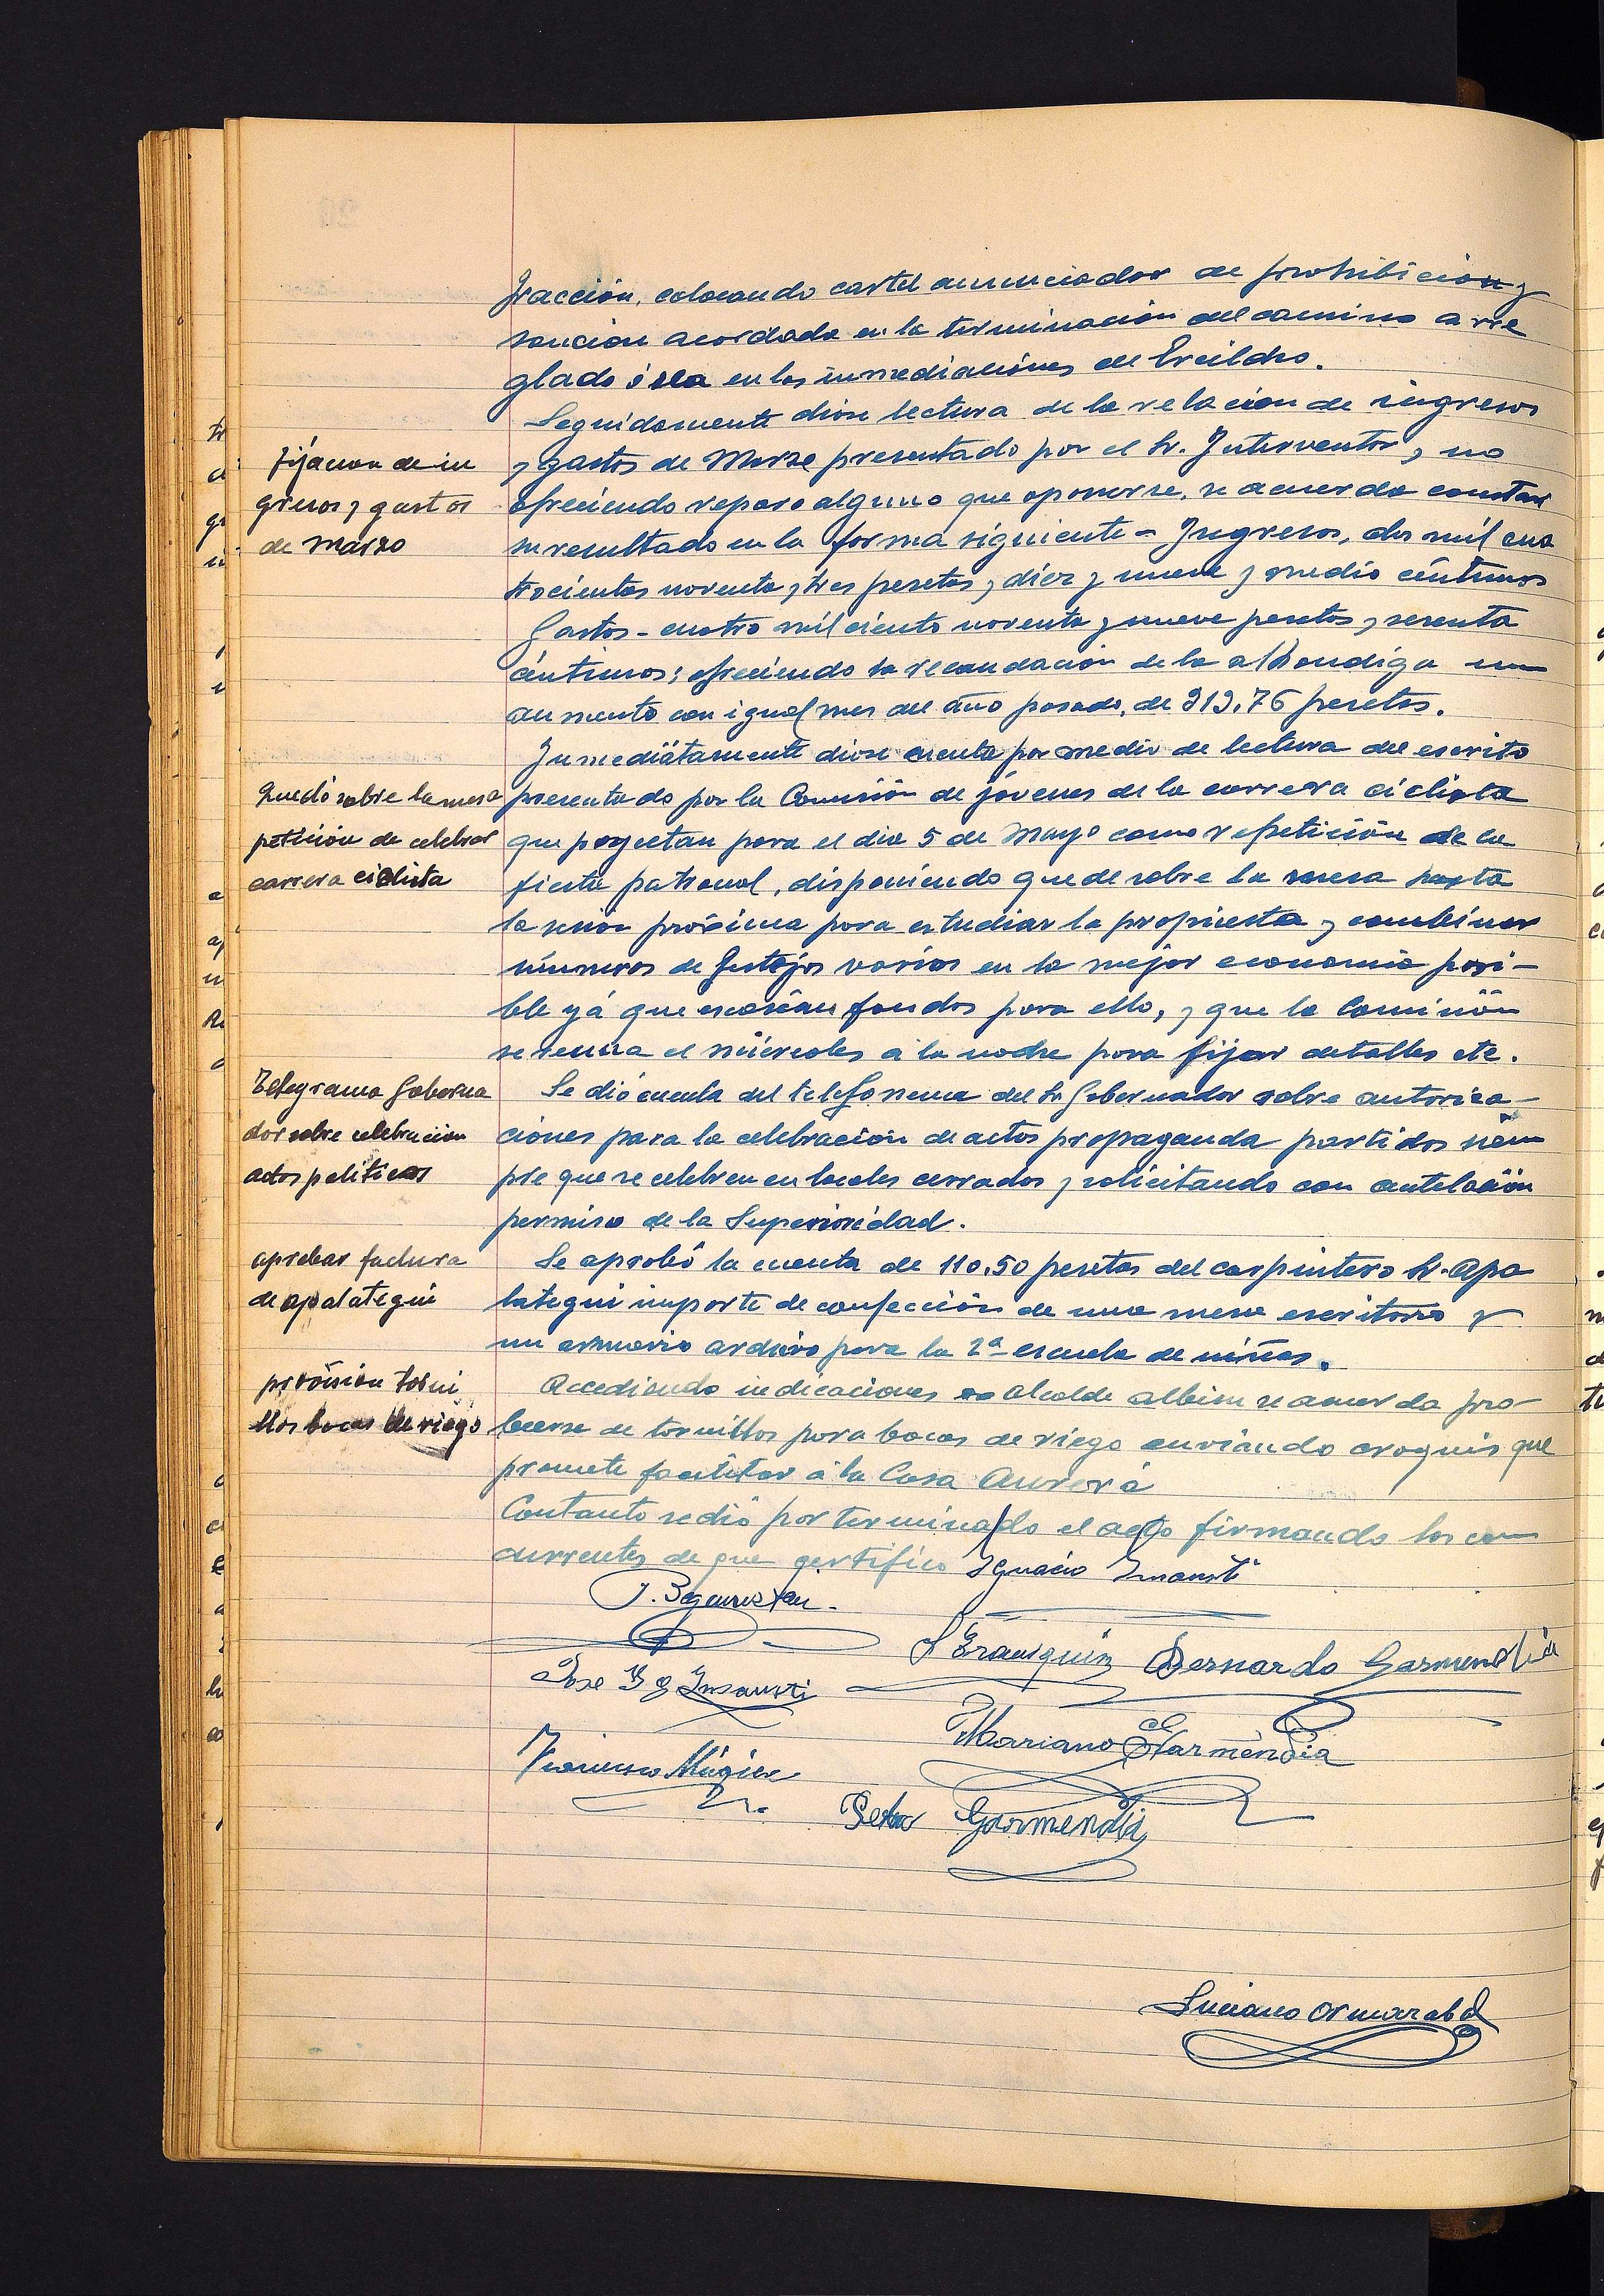 fracción, colocando cartel anunciador de prohibición y
sanción acordada en la terminación del camino arre
glado ó sea en las inmediaciones de Ercildxo.
Seguidamente dióse lectura de la relación de ingresos
fijacion de in
gresos y gastos
de Marzo
y gastos de Marzo presentado por el Sr. Interventor, y no
ofreciendo reparo alguno que oponerse, se acuerda constar
su resultado en la forma siguiente = Ingresos, dos mil cua
trocientas noventa y tres pesetas y diez y nueve y medio céntimos
Gastos - cuatro mil ciento noventa y nueve pesetas y sesenta
céntimos; ofreciendo la recaudación de la alhondiga un
aumento con igual mes del año pasado, de 313,76 pesetas.
Inmediátamente dióse cuenta por medio de lectura del escrito
Quedó sobre la mesa
petición de celebrar
carrera ciclista
presentado por la Comisión de jóvenes de la carrera ciclista
que poyectan para el dia 5 de Mayo como repetición de la
fiesta patronal, disponiendo quede sobre la mesa hasta
la sesión próxima para estudiar la propuesta y combinar
números de festejos varios en la mejor economia posi-
ble yá que escaséan fondos para ello, y que la Comisión
se reuna el miércoles á la noche para fijar detalles etc.
Telegrama Goberna
dor sobre celebracion
actos politicos
Se dió cuenta del telefonema del Sr Gobernador sobre autoriza-
ciones para la celebración de actos propaganda partidos siem
pre que se celebren en locales cerrados y solicitando con antelación
permiso de la Superioridad.
aprobar factura
de apalategui
Se aprobó la cuenta de 110,50 pesetas del carpintero Sr. Apa
lategui importe de confección de una mesa escritorio y
un armario archivo para la 2ª escuela de niños.
provision torni
llos bocas de riego
Accediendo indicaciones Alcalde albim se acuerda pro-
beerse de tornillos para bocas de riego enviando croquis que
promete facilitar á la Casa Aurerá
Contanto se dió por terminado el acto firmando los con
currentes de que certifico Ignacio Insausti
José Y. G Insausti
Bernardo Garmendia
Francisco Múgica
Mariano Garmendia
Garmendia
Luciano Ormazabal